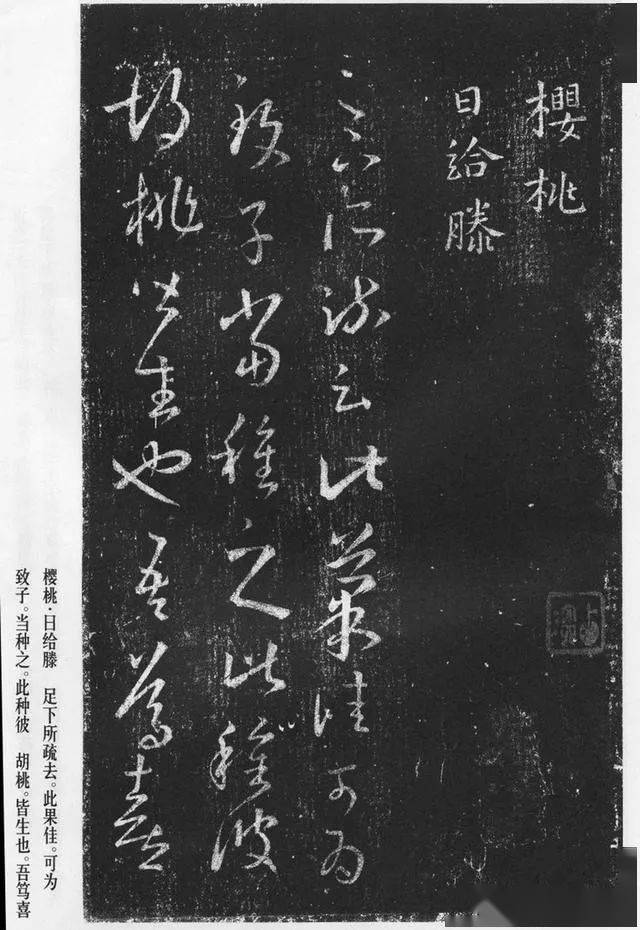 櫻桃
日給滕
足下所疏云此菓佳可為
致子當種之此種彼
胡桃皆生也吾篤喜
樱桃·日给滕　足下所疏去。此果佳。可为
致子。当种之。此种彼　胡桃。皆生也。吾笃喜